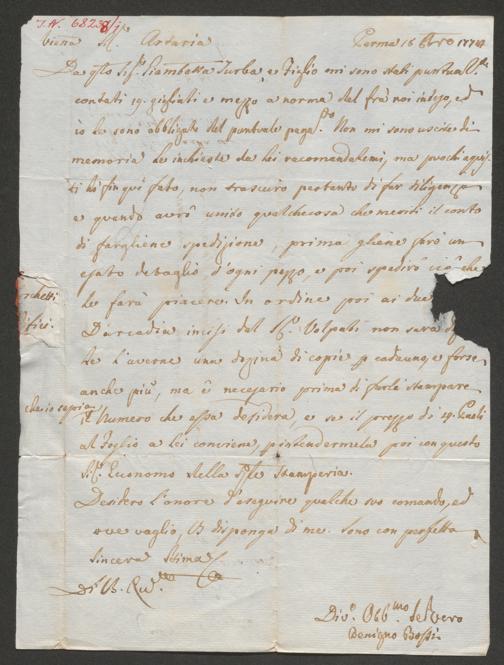 I.N. 68239/1
viena Sr. Artaria Parma 16 8bre 1774
Da qsto Sigr. Giambatta Turba, e Figlio mi sono stati puntualte.
contati 19. gigliati e mezzo a norma del frà noi inteso, ed
io le sono obbligato del puntuale pagato. Non mi sono uscite di
memoria le inchieste da lei recomandatemi, ma pochi aquis-
ti hò fin quì fato, non trascuro pertanto di far diligenze
e quando avrò unito qualchecosa che meriti il conto
di fargliene spedizione, prima gliene farò un
esato detaglio d'ogni pezzo, e poi spedirò ciò che
le farà piacere. In ordine poi ai due
D'arcadia incisi dal Sr. Volpati non sarà
te l'averne una dozina di copie p cadauno, e forse
anche più, ma è necesario prima di farle stampare
che io sapia
il Numero che essa desidera, e se il prezzo di 4. Paoli
al foglio a lei conviene, pintendermela poi con questo
Sigr. Economo della Rle Stamperia.
Desidero l'onore d'eseguire qualche suo comando, ed
ove vaglio, VS disponga di me. Sono con perfetta
sincera stima
Di VS. Rivma
Divo. Obbmo Servero
Benigno Bossi